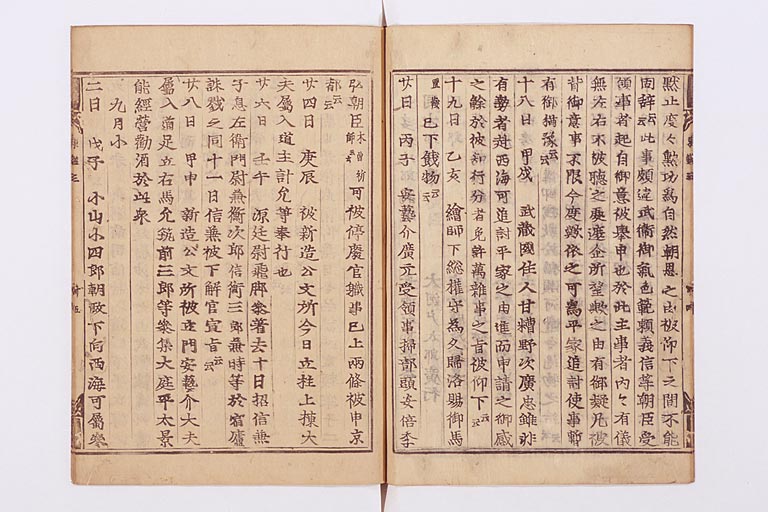 黙止度々勲功為自然朝恩之由被仰下之間不能
固辞云云此事頗違武衛御氣色範頼義信等朝臣受
領事者起自御意被擧申也於此主事者内々有儀
無左右不被聴之處遮企所望歟之由有御疑凡被
背御意事不限今度歟依之可為平家追討使事暫
有御猶豫云云
十八日 甲戌 武蔵國住人甘糟野次廣忠雖非
有勢者赴西海可追討平家之由進而申請之御感
之餘於彼知行分者免許萬雜事之旨被仰下云云
十九日 乙亥 繪師下総權守為久歸洛賜御馬
置鞍已下餞物云云
廿日 丙子 安藝介廣元受領事掃部頭安倍季
弘朝臣木曾祈師云云可被停廢官職事已上兩條被申京
都云云
廿四日 庚辰 被新造公文所今日立柱上棟大
夫屬入道主計允等奉行也
廿六日 壬午 源廷尉飛脚參著去十日招信兼
子息左衛門尉兼衡次郎信衡三郎兼時等於宿廬
誅戮之同十一日信兼被下解官宣旨云云
廿八日 甲申 新造公文所被立門安藝介大夫
屬入道足立右馬允筑前三郎等參集大庭平太景
能經營勸酒於此衆
九月小
二日 戊子 小山小四郎朝政下向西海可屬參